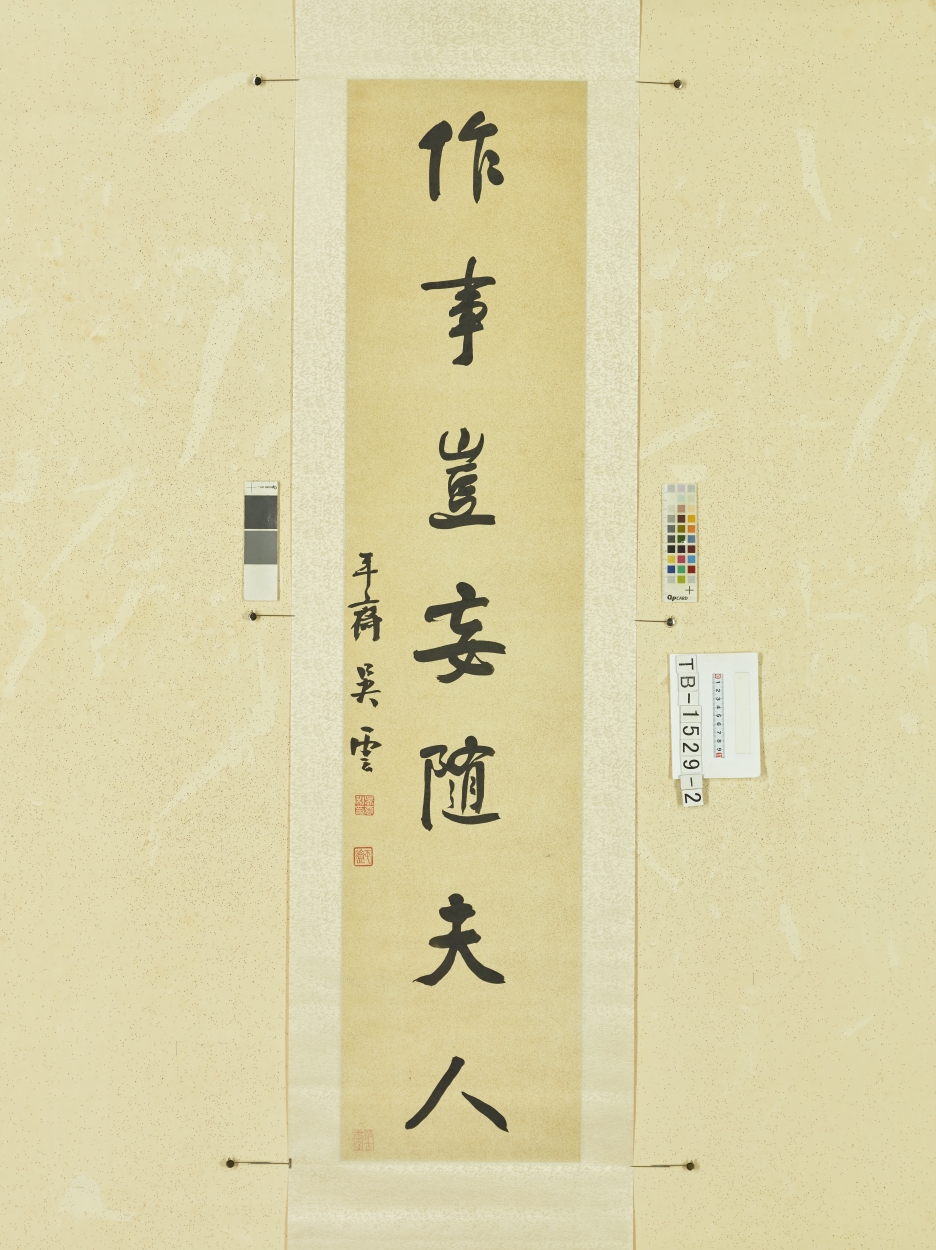 作事豈妄随夫人
平齋 吳雲
QpCARD
TB-1529-2
1 2 3 4 5 6 7 8 9